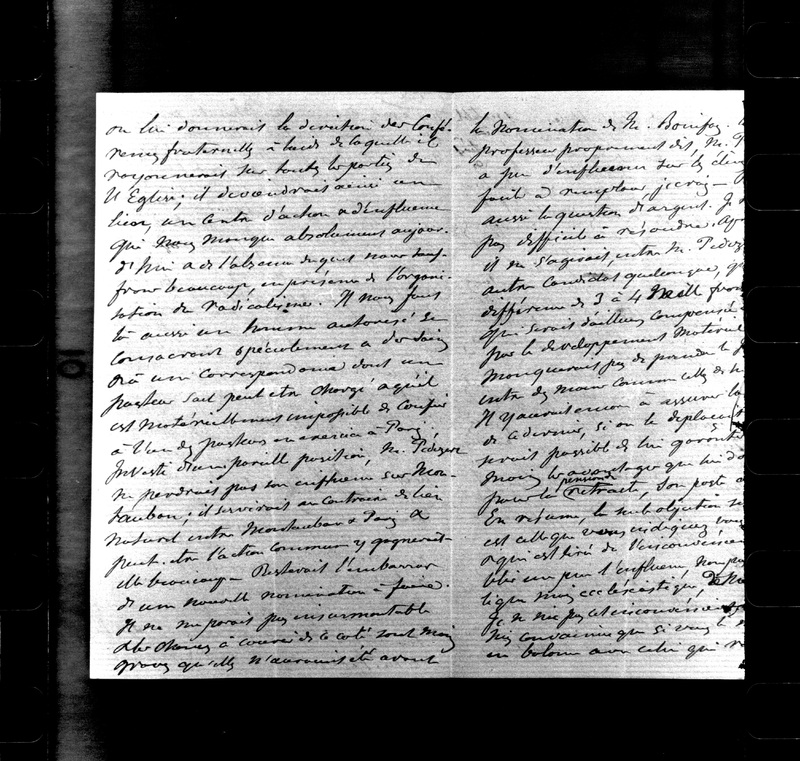 on lui donnerait la direction des Confé-
rences fraternelles à l'aide de laquelle il
rayonnerait sur toutes les parties de
l'Eglise; il deviendrait ainsi un
lien, un centre d'action & d'influence
qui nous manque absolument aujour-
d'hui & de l'absence duquel nous souf-
frons beaucoup, en présence de l'organi-
sation du radicalisme. Il nous faut
là aussi un homme autorisé se
consacrant spécialement à des soins
& à une correspondance dont un
pasteur seul peut être chargé & qu'il
est matériellement impossible de confier
à l'un des pasteurs en exercice à Paris.
Investi d'une pareille position, M. Pédezert
ne perdrait pas son influence sur Mon-
tauban; il servirait au contraire de lien
naturel entre Montauban & Paris &
peut-être l'action commune y gagnerait-
elle beaucoup. Resterait l'embarras
d'une nouvelle nomination à faire.
Il ne me paraît pas insurmontable
& les chances à courir de ce côté sont moins
graves qu'elles n'auraient été avant
la nomination de M. Bonifas.
professeur proprement dit, M.
a peu d'influence sur les
facile à remplacer, je crois
aussi la question d'argent.
pas difficile à résoudre.
il ne s'agirait, entre M. Pédezert
autre candidat quelconque,
différence de 3 à 4 mille
qui serait d'ailleurs compensée
par le développement matériel
manquerait pas de prendre
entre des mains comme celles de
Il y aurait encore à assurer
de ce dernier, si on le déplaçait
serait possible de lui garantir
moins les avantages que lui
pour la pension de retraite, son poste
En résumé, la seule objection
est celle que vous indiquez
& qui est tirée de l'inconvénient
un peu l'influence, non
mais ecclésiastique, de
Je ne nie pas cet inconvénient
suis convaincu que si vous le
en balance avec celui qui